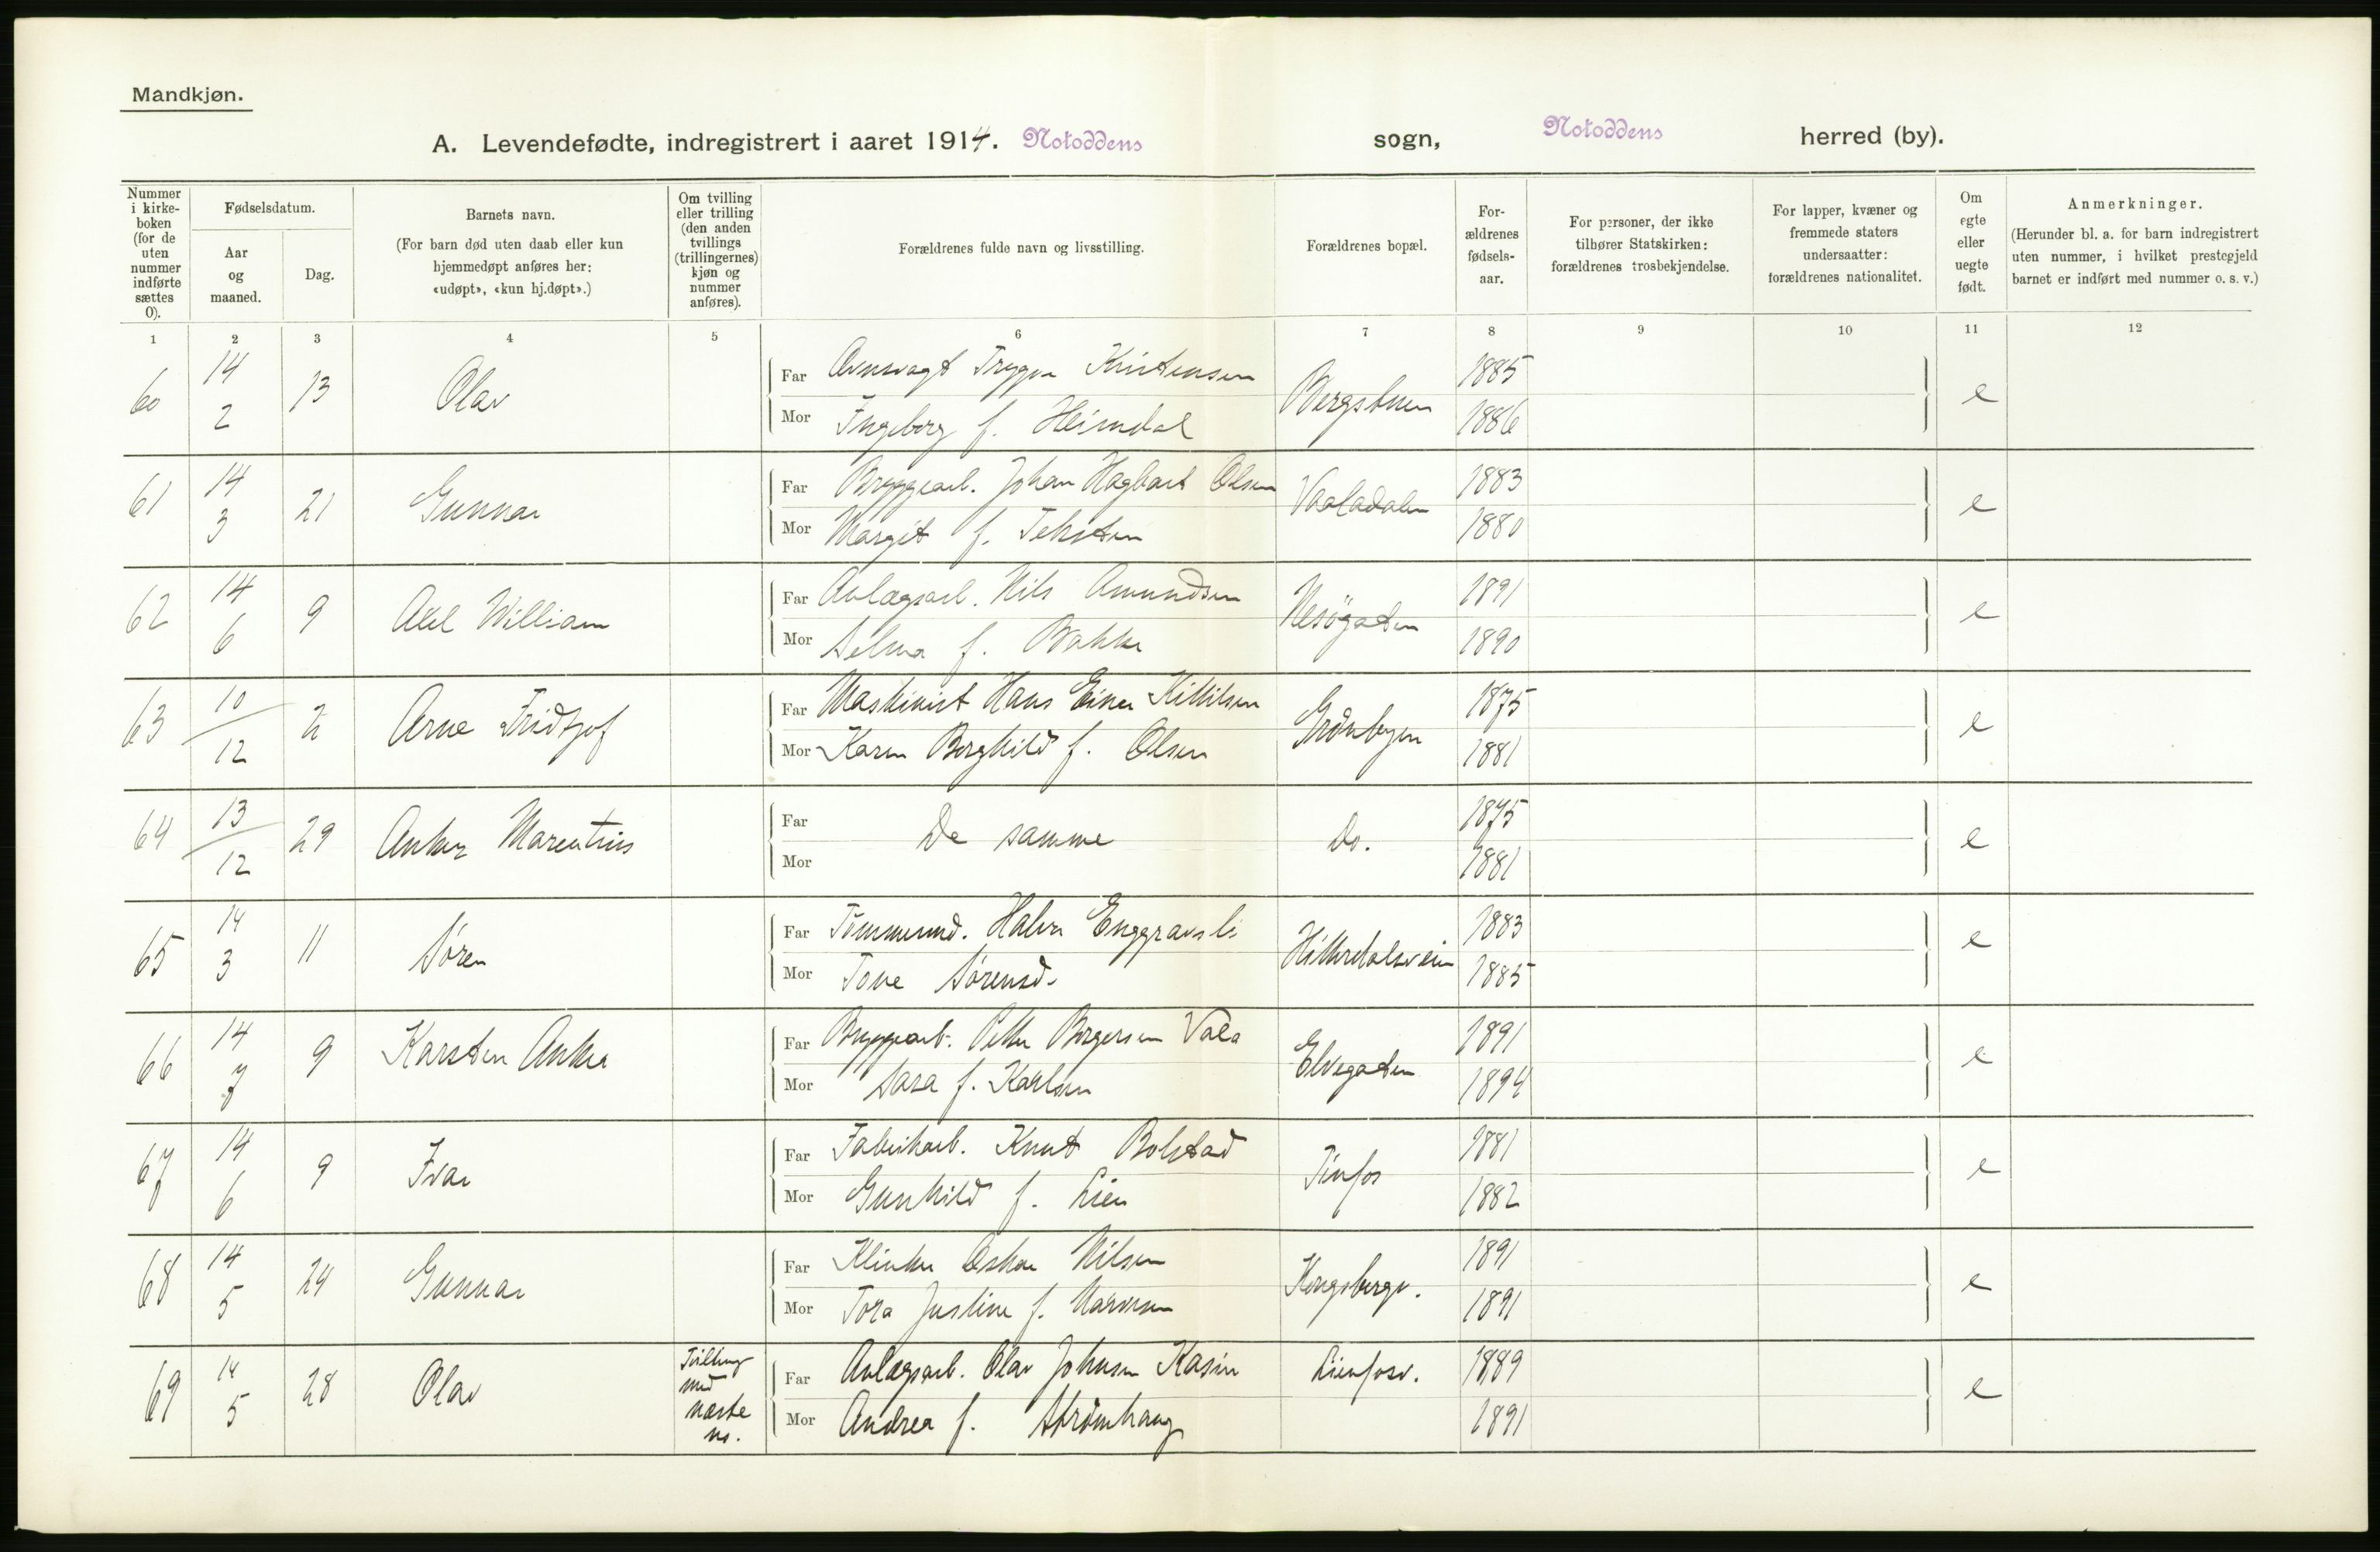 Mandkjøn.
A. Levendefødte, indregistrert i aaret 1914. Notoddens sogn, Notoddens herred (by).
Nummer i kirke-boken (for de uten nummer indførte sættes 0).
Fødselsdatum.
Aar og maaned.
Dag.
Barnets navn.
(For barn død uten daab eller kun hjemmedøpt anføres her: «udøpt», «kun hj.døpt».)
Om tvilling eller trilling (den anden tvillings (trillingernes) kjøn og nummer anføres).
Forældrenes fulde navn og livsstilling.
Forældrenes bopæl.
For-ældrenes fødsels-aar.
For personer, der ikke tilhører Statskirken: forældrenes trosbekjendelse.
For lapper, kvæner og fremmede staters undersaatter: forældrenes nationalitet.
Om egte eller uegte født.
Anmerkninger.
(Herunder bl. a. for barn indregistrert uten nummer, i hvilket prestegjeld barnet er indført med nummer o. s. v.)
1 2 3 4 5 6 7 8 9 10 11 12
60 14 2 13 Olav Far Ovnsvagt Trygve Kristensen Bergstuen 1885 e
Mor Ingeborg f. Heimdal 1886
61 14 3 21 Gunnar Far Bryggearb. Johan Hagbart Olsen Vaaladalen 1883 e
Mor Margit f. Teksten 1880
62 14 6 9 Axel William Far Anlægsarb. Nils Amundsen Nesögaden 1891 e
Mor Selma f. Bakke 1890
63 10 12 2 Arne Fridtjof Far Maskinist Hans Einer Kittilsen Grönbyen 1875 e
Mor Karen Borghild f. Olsen 1881
64 13 12 29 Anker Marentius Far De samme Do. 1875 e
Mor 1881
65 14 3 11 Sören Far Tömmermd. Halvor Enggravsli Hitterdalsveien 1883 e
Mor Tone Sörensd. 1885
66 14 7 9 Karsten Anker Far Bryggearb. Petter Borgersen Vala Elvegaten 1891 e
Mor Sara f. Karlsen 1894
67 14 6 9 Ivar Far Fabrikarb. Knut Bolstad Tinfos 1881 e
Mor Gunhild f. Lien 1882
68 14 5 24 Gunnar Far Klinker Oskar Nilsen Kongsbergv. 1891 e
Mor Tora Justine f. 1891
69 14 5 28 Olav Tvilling med næste no. Far Anlægsarb. Olav Johnsen Kasin Lienfosv. 1889 e
Mor Andrea f. Strömhaug 1891